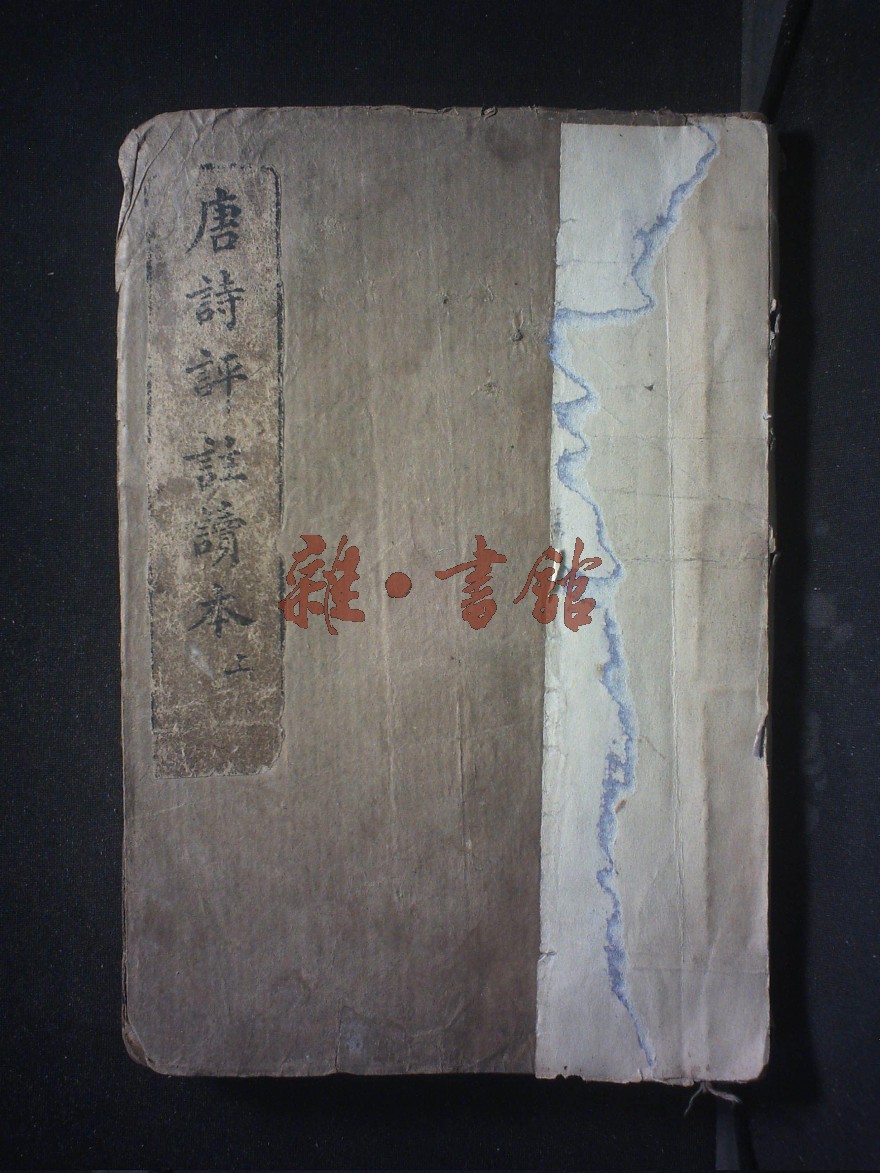 唐詩評註讀本 上
雜·書館